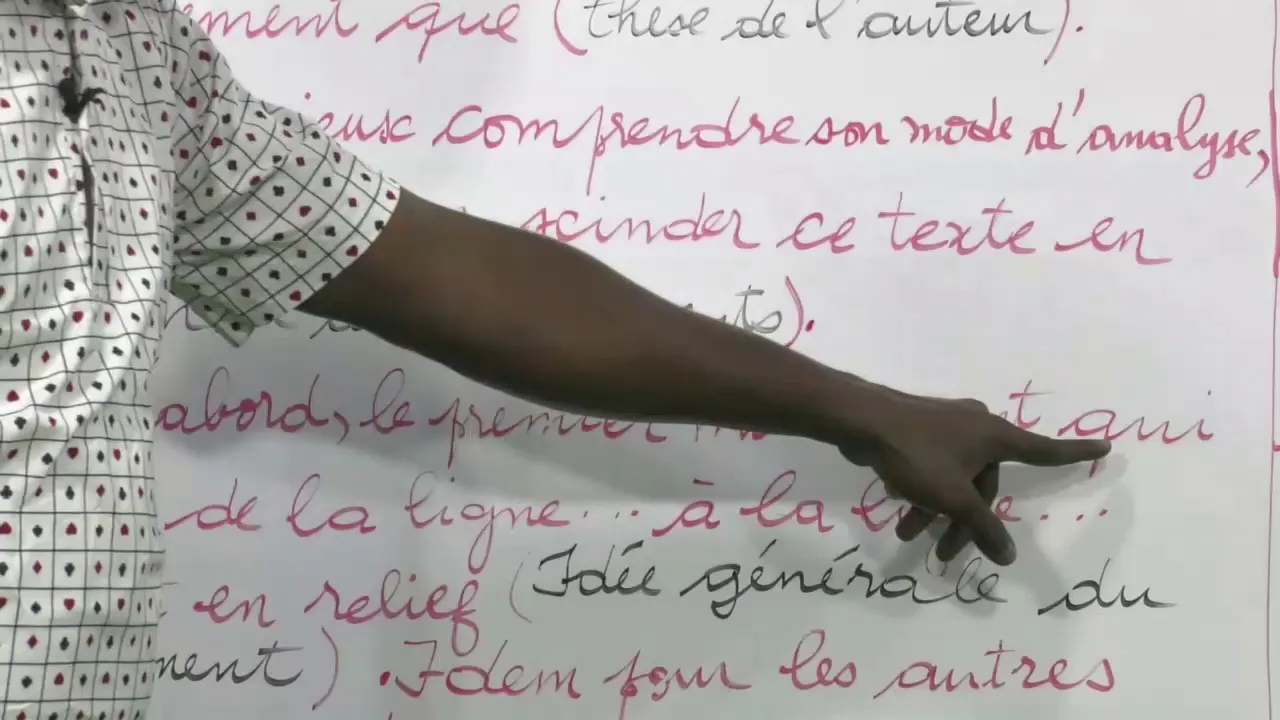 ment que (thèse de l'auteur).
comprendre son mode d'analyse,
scinder ce texte en
abord, le premier qui
de la ligne... à la ligne...
en relief (Idée générale du
ment). Idem pour les autres